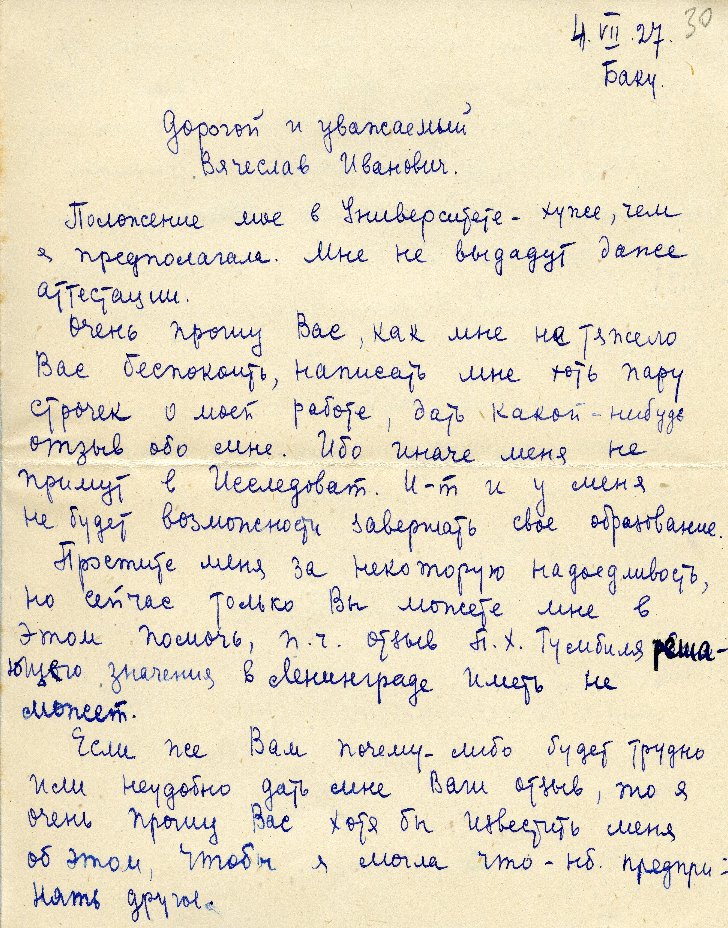 30
4.VII.27.
Баку.
Дорогой и уважаемый
Вячеслав Иванович.
Положение мое в Университете - хуже, чем
я предполагала. Мне не выдадут даже
аттестации.
Очень прошу Вас, как мне не тяжело
Вас беспокоить, написать мне хоть пару
строчек о моей работе, дать какой-нибудь
отзыв обо мне. Ибо иначе меня не
примут в Исследоват. И-т и у меня
не будет возможности завершать свое образование.
Простите меня за некоторую надоедливость,
но сейчас только Вы можете мне в
этом помочь, п.ч. отзыв П.Х. Тумбиля реша-
ющего значения в Ленинграде иметь не
может.
Если же Вам почему-либо будет трудно
или неудобно дать мне Ваш отзыв, то я
очень прошу Вас хотя бы известить меня
об этом, чтобы я могла что-нб. предпри-
нять другое.